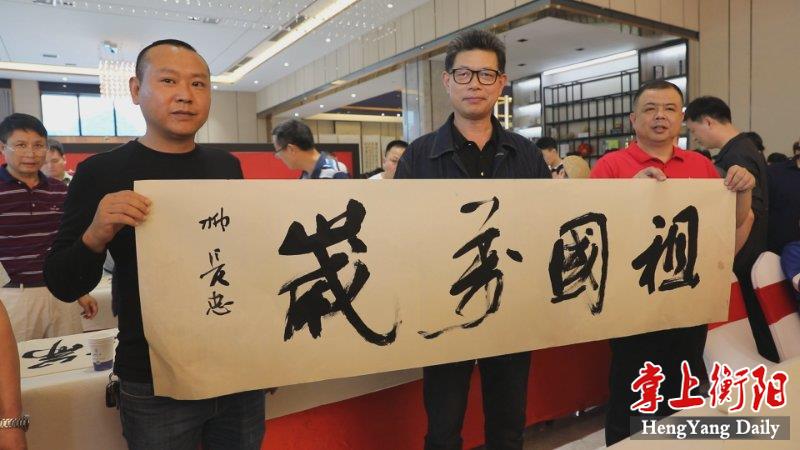 祖國萬歲
柳長忠
掌上衡阳
HengYang Daily